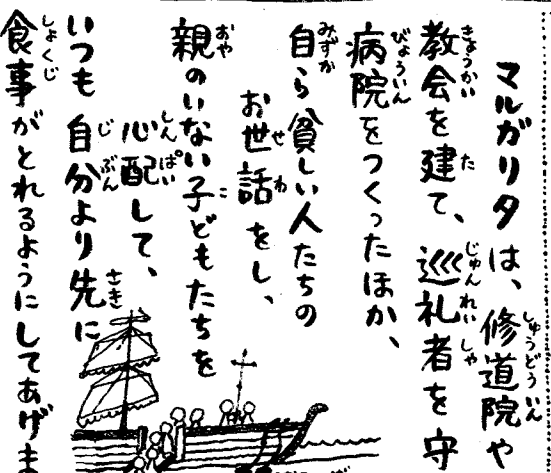 マルガリタは、修道院や
教会を建て、巡礼者を守
病院をつくったほか、
自ら貧しい人たちの
お世話をし、
親のいない子どもたちを
心配して、
いつも自分より先に
食事がとれるようにしてあげま